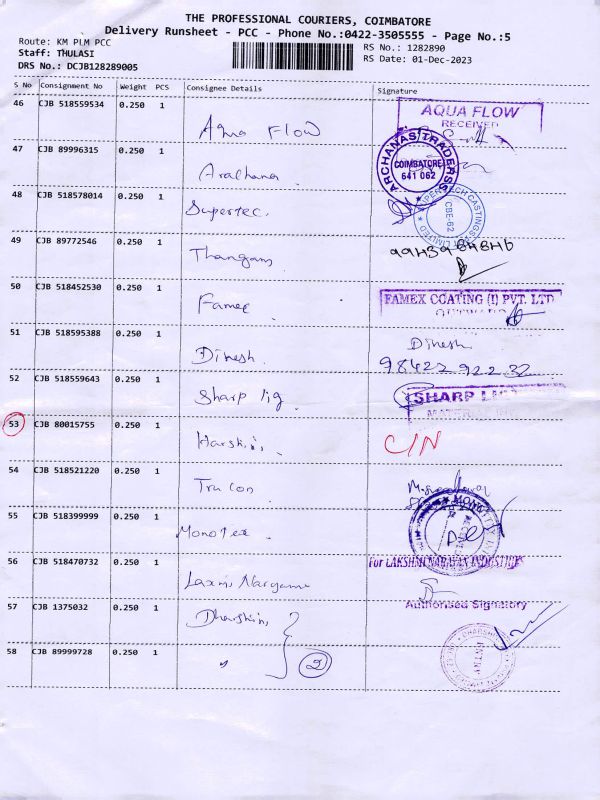 THE PROFESSIONAL COURIERS, COIMBATORE
Delivery Runsheet - PCC - Phone No.:0422-3505555 - Page No.:5
Route: KM PLM PCC
RS No.: 1282890
Staff: THULASI
RS Date: 01-Dec-2023
DRS No.: DCJB128289005
S No Consignment No Weight PCS Consignee Details Signature
46 CJB 518559534 0.250 1 Aqua Flow AQUA FLOW
RECEIVED
47 CJB 89996315 0.250 1 Aradhana ARCHANAS TRADERSS
COIMBATORE
641 062
48 CJB 518578014 0.250 1 Supertec. CASTINGS LIMITED
CBE-62
49 CJB 89772546 0.250 1 Thangam
50 CJB 518452530 0.250 1 Famex FAMEX COATING (I) PVT. LTD
51 CJB 518595388 0.250 1 Dinesh. Dinesh
98422 922 32
52 CJB 518559643 0.250 1 Sharp lig SHARP
53 CJB 80015755 0.250 1 Harshini, C/N
54 CJB 518521220 0.250 1 Tru Con
55 CJB 518399999 0.250 1 Monotex.
56 CJB 518470732 0.250 1 Laxmi Narayana For LAKSHMI NARAYAN INDUSTRIES
Authorised Signatory
57 CJB 1375032 0.250 1 Dharshini,
58 CJB 89999728 0.250 1 〃 2 ENTRY